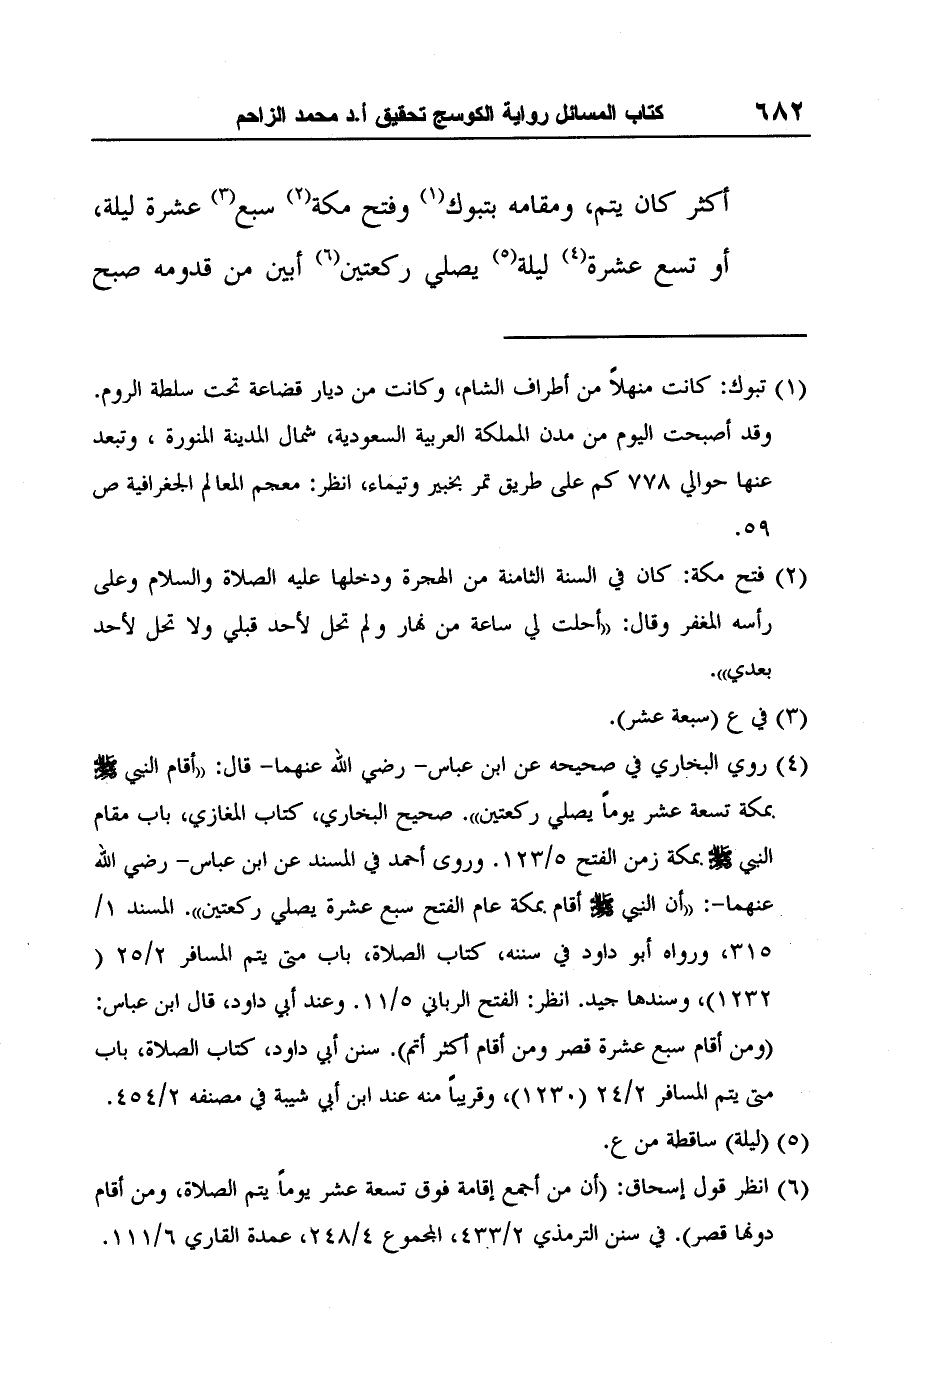 ٦٨٢ كتاب المسائل رواية الكوسج تحقيق أ.د محمد الزاحم
أكثر كان يتم، ومقامه بتبوك(١) وفتح مكة(٢) سبع(٣) عشرة ليلة،
أو تسع عشرة(٤) ليلة(٥) يصلي ركعتين(٦) أبين من قدومه صبح
(١) تبوك: كانت منهلاً من أطراف الشام، وكانت من ديار قضاعة تحت سلطة الروم.
وقد أصبحت اليوم من مدن المملكة العربية السعودية، شمال المدينة المنورة ، وتبعد
عنها حوالي ٧٧٨ كم على طريق تمر بخيبر وتيماء، انظر: معجم المعالم الجغرافية ص
٥٩.
(٢) فتح مكة: كان في السنة الثامنة من الهجرة ودخلها عليه الصلاة والسلام وعلى
رأسه المغفر وقال: ((أحلت لي ساعة من نهار ولم تحل لأحد قبلي ولا تحل لأحد
بعدي)).
(٣) في ع (سبعة عشر).
(٤) روي البخاري في صحيحه عن ابن عباس- رضي الله عنهما- قال: ((أقام النبي ﷺ
بمكة تسعة عشر يوماً يصلي ركعتين)). صحيح البخاري، كتاب المغازي، باب مقام
النبي ﷺ بمكة زمن الفتح ١٢٣/٥. وروى أحمد في المسند عن ابن عباس- رضي الله
عنهما-: ((أن النبي ﷺ أقام بمكة عام الفتح سبع عشرة يصلي ركعتين)). المسند ١/
٣١٥، ورواه أبو داود في سننه، كتاب الصلاة، باب متى يتم المسافر ٢٥/٢ (
١٢٣٢)، وسندها جيد. انظر: الفتح الرباني ١١/٥. وعند أبي داود، قال ابن عباس:
(ومن أقام سبع عشرة قصر ومن أقام أكثر أتم). سنن أبي داود، كتاب الصلاة، باب
متى يتم المسافر ٢٤/٢ (١٢٣٠)، وقريباً منه عند ابن أبي شيبة في مصنفه ٤٥٤/٢.
(٥) (ليلة) ساقطة من ع.
(٦) انظر قول إسحاق: (أن من أجمع إقامة فوق تسعة عشر يوماً يتم الصلاة، ومن أقام
دونها قصر). في سنن الترمذي ٤٣٣/٢، المجموع ٢٤٨/٤، عمدة القاري ١١١/٦.